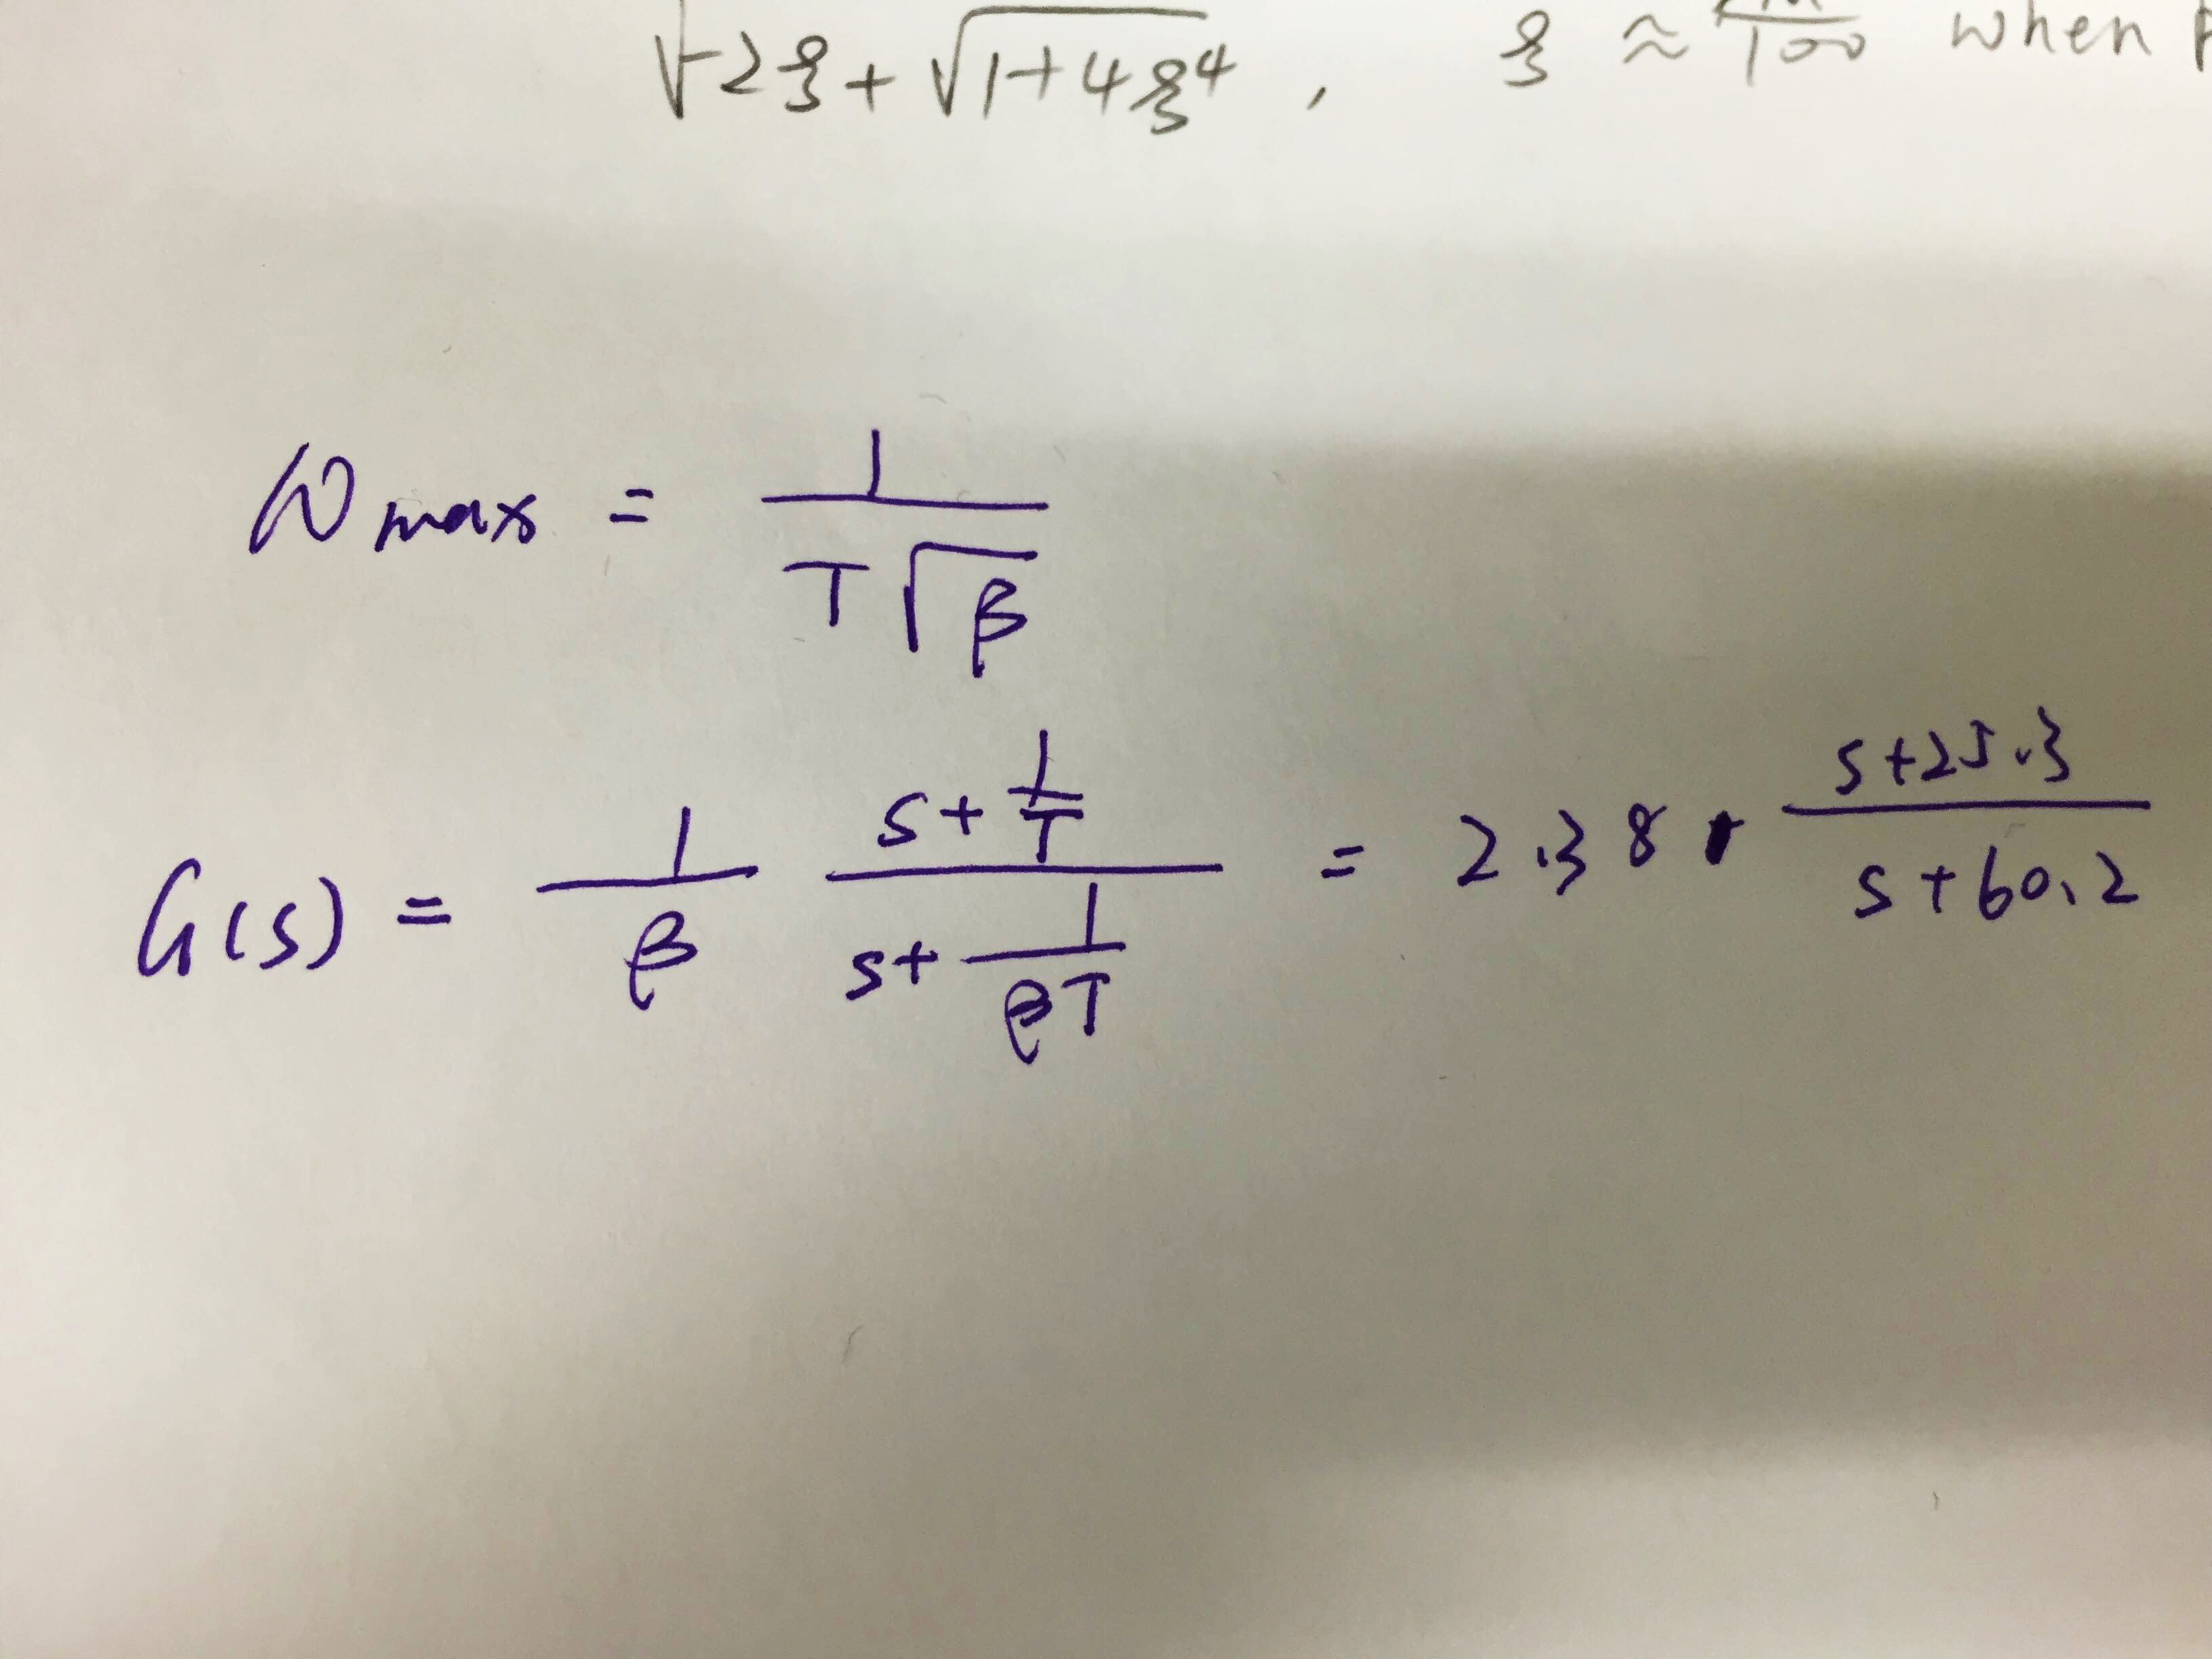 √-2ξ+√1+4ξ⁴ , ξ ≈ /100 when
ωmax = 1/(T√β)
G(s) = 1/β (s+1/T)/(s+1/(βT)) = 2.38 · (s+25.3)/(s+60.2)